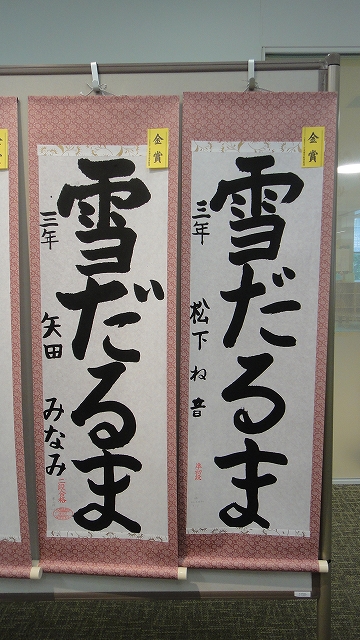 金賞
雪だるま
三年 松下ね音
準初段
金賞
雪だるま
三年 矢田みなみ